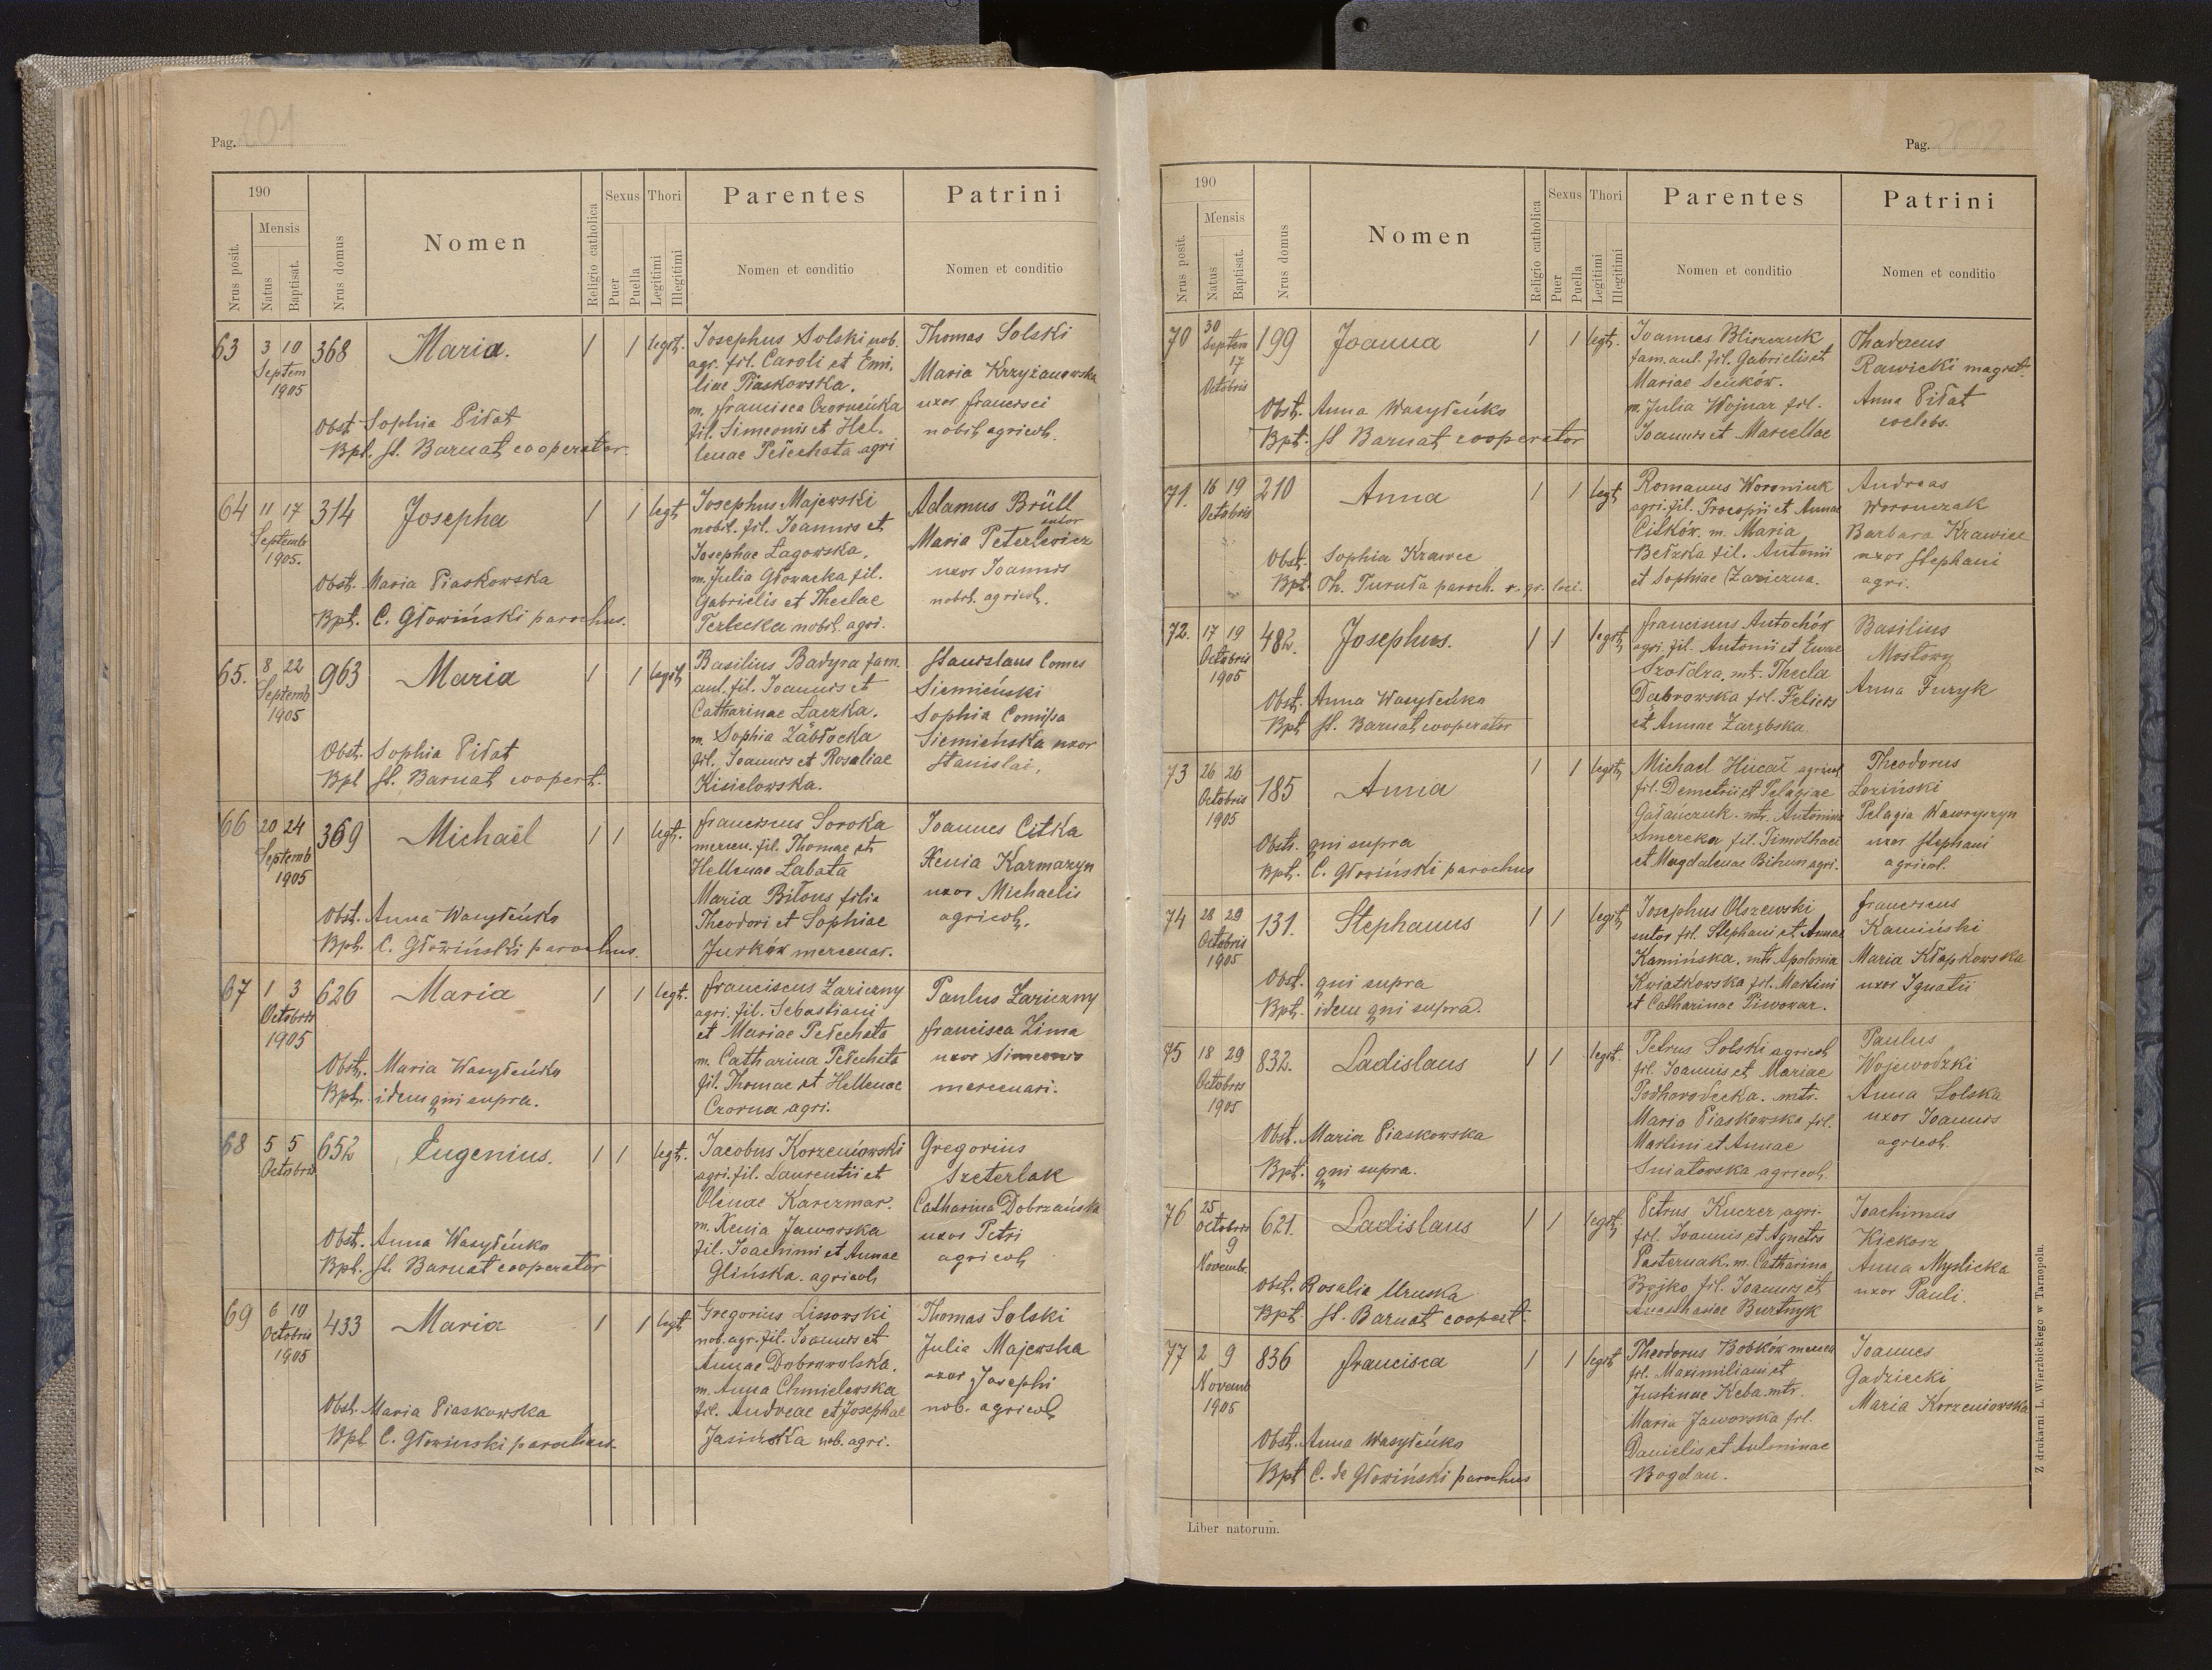 Pag. 201
190
Nrus posit.
Mensis
Natus
Baptisat.
Nrus domus
Nomen
Religio catholica
Sexus
Puer
Puella
Thori
Legitimi
Illegitimi
Parentes
Nomen et conditio
Patrini
Nomen et conditio
63
3 10
Septem
1905
368
Maria.
1 1 legt.
Obst. Sophia Piłat
Bpt. St. Barnat cooperator
Josephus Solski nob.
agr. fil. Caroli et Emi.
liae Piaskowska.
m. Francisca Czorneńka
fil. Simeonis et Hel.
lenae Pełechata agri
Thomas Solski
Maria Krzyżanowska
uxor Francisci
nobil. agricol.
64
11 17
Septemb
1905.
314
Josepha
1 1 legt
Obst. Maria Piaskowska
Bpt. C. Głowiński parochus.
Josephus Majewski
nobil. fil. Joannis et
Josephae Łagowska.
m. Julia Głowacka fil.
Gabrielis et Theclae
Terlecka nobil. agri.
Adamus Brüll
sutor
Maria Peterlewicz
uxor Joannis
nobil. agricol.
65.
8 22
Septemb
1905
963
Maria
1 1 legit
Obst. Sophia Piłat
Bpt St. Barnat coopert.
Basilius Badyra fam.
aul. fil. Joannis et
Catharinae Łaczka.
m. Sophia Zabłocka
fil. Joannis et Rosaliae
Kisielowska.
Stanislaus Comes
Siemieński
Sophia Comissa
Siemieńska uxor
Stanislai.
66
20 24
Septemb
1905
369
Michaël
1 1 legt.
Obst. Anna Wasyłeńko
Bpt. C. Głowiński parochus.
Franciscus Soroka
mercen. fil. Thomae et
Hellenae Labata
Maria Biłous filia
Theodori et Sophiae
Jurków mercenar.
Joannes Citka
Xenia Karmazyn
uxor Michaelis
agricol.
67
1 3
Octobris
1905
626
Maria
1 1 legt.
Obst. Maria Wasyłeńko
Bpt. idem qui supra.
Franciscus Zariczny
agri. fil. Sebastiani
et Mariae Pełechata
m. Catharina Pełechata
fil. Thomae et Hellenae
Czorna agri.
Paulus Zariczny
Francisca Zima
uxor Simeonis
mercenari.
68
5 5
Octobris
652
Eugenius.
1 1 legt.
Obst. Anna Wasyłeńko
Bpt. St. Barnat cooperator
Jacobus Korzeniowski
agri. fil. Laurentii et
Olenae Karczmar.
m. Xenia Jaworska
fil. Joachimi et Annae
Glińska. agricol.
Gregorius
Szeterlak
Catharina Dobrzańska
uxor Petri
agricol.
69
6 10
Octobris
1905
433
Maria
1 1 legt
Obst. Maria Piaskowska
Bpt C. Głowinski parochus.
Gregorius Lissowski
nob. agr. fil. Joannis et
Annae Dobrowolska.
m. Anna Chmielewska
fil. Andreae et Josephae
Jasińska nob. agri.
Thomas Solski
Julia Majewska
uxor Josephi
nob. agricol.
Pag.
190
Nrus posit.
Mensis
Natus
Baptisat.
Nrus domus
Nomen
Religio catholica
Sexus
Puer
Puella
Thori
Legitimi
Illegitimi
Parentes
Nomen et conditio
Patrini
Nomen et conditio
70
30
Septem
17
Octobris
199
Joanna
1 1 legt.
Obst. Anna Wasyłeńko
Bpt. St Barnat cooperator
Joannes Bliszczuk
fam. aul. fil. Gabrielis et
Mariae Seńków.
m. Julia Wojnar fil.
Joannis et Marcellae
Thadaeus
Rawicki magist.
Anna Piłat
coelebs.
71.
16 19
Octobris
210
Anna
1 1 legt
Obst. Sophia Krawec
Bpt. Th. Turuła paroch. r. gr. loci.
Romanus Woroniuk
agri. fil. Procopii et Annae
Citków. m. Maria
Bełzka fil. Antonii
et Sophiae Zariczna.
Andreas
Woronczak
Barbara Krawiec
uxor Stephani
agri.
72.
17 19
Octobris
1905
482.
Josephus.
1 1 legit
Obst. Anna Wasyłeńko
Bpt St. Barnat cooperator
Franciscus Antochów
agri. fil. Antonii et Ewae
Szołdra. mt. Thecla
Dąbrowska fil. Felicis
et Annae Zarębska
Basilius
Mostowy
Anna Furyk
73
26 26
Octobris
1905
185
Anna
1 1 legit
Obst. qui supra
Bpt. C. Głowiński parochus
Michael Hucał agricol
fil. Demetrii et Pelagiae
Gałańczuk. mt. Antonina
Smereka fil. Timothaei
et Magdalenae Bihun agri.
Theodorus
Loziński
Pelagia Wawryszyn
uxor Stephani
agricol.
74
28 29
Octobris
1905
131.
Stephanus
1 1 legit
Obst. qui supra
Bpt. idem qui supra.
Josephus Olszewski
sutor fil. Stephani et Annae
Kamińska. mt. Apolonia
Kwiatkowska fil. Martini
et Catharinae Piwowar.
Franciscus
Kamiński
Maria Kłapkowska
uxor Ignatii
75
18 29
Octobris
1905
832.
Ladislaus
1 1 legit.
Obst. Maria Piaskowska
Bpt. qui supra.
Petrus Solski agricol
fil. Joannis et Mariae
Podhorodecka. mtr.
Maria Piaskowska fil.
Martini et Annae
Sniatowska agricol.
Paulus
Wojewodzki
Anna Solska
uxor Joannis
agricol.
76
25
Octobris
9
Novemb.
621.
Ladislaus
1 1 legit.
Obst. Rosalia Uruska
Bpt. St. Barnat coopert.
Petrus Kuczer agri.
fil. Joannis et Agnetis
Pasternak. m. Catharina
Bojko fil. Joannis et
Anasthasiae Burtnyk
Joachimus
Kickosz
Anna Myslicka
uxor Pauli
77
2 9
Novemb
1905
836
Francisca
1 1 legit
Obst. Anna Wasyłeńko
Bpt C. de Głowiński parochus
Theodorus Bobków mercen
fil. Maximiliani et
Justinae Keba. mtr.
Maria Jaworska fil.
Danielis et Antoninae
Bogdan.
Joannes
Gadziecki
Maria Korzeniowska
Liber natorum.
Z drukarni L. Wierzbickiego w Tarnopolu.